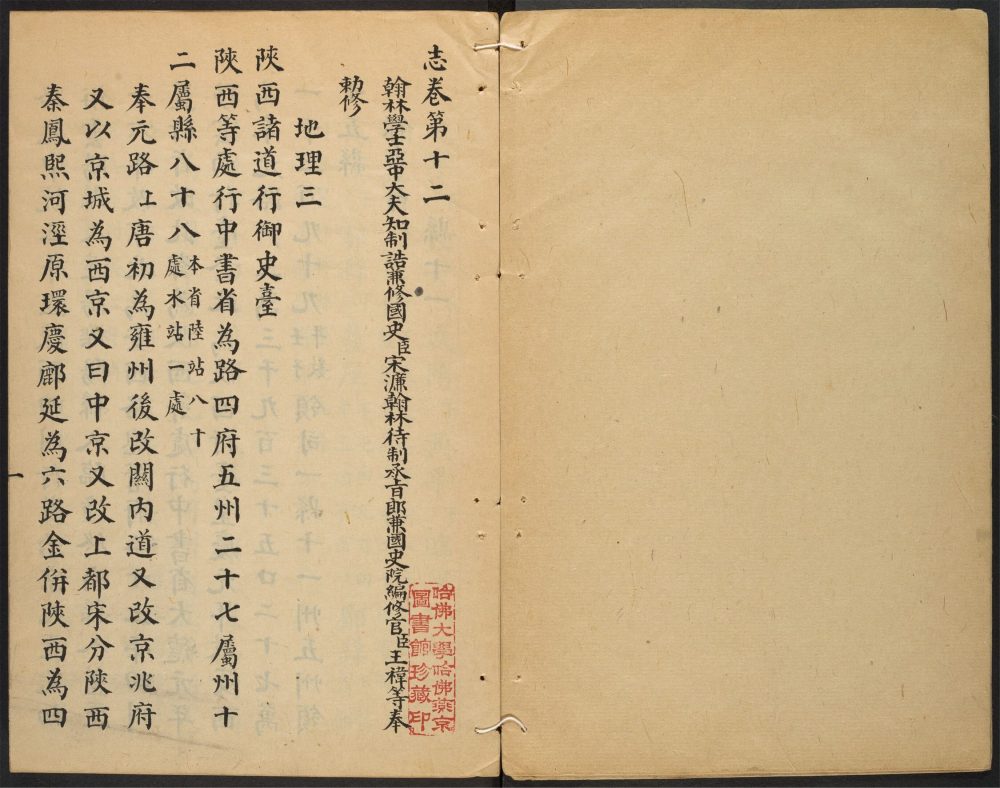 志卷第十二
翰林學士亞中大夫知制誥兼修國史臣宋濂翰林待制承直郎兼國史院編修官臣王禕等奉
勅修
地理三
陝西諸道行御史臺
陝西等處行中書省為路四府五州二十七屬州十
二屬縣八十八本省陸站八十處水站一處
奉元路上唐初為雍州後改關內道又改京兆府
又以京城為西京又曰中京又改上都宋分陝西
秦鳳熙河涇原環慶鄜延為六路金併陝西為四
一
哈佛大學哈佛燕京
圖書館珍藏印